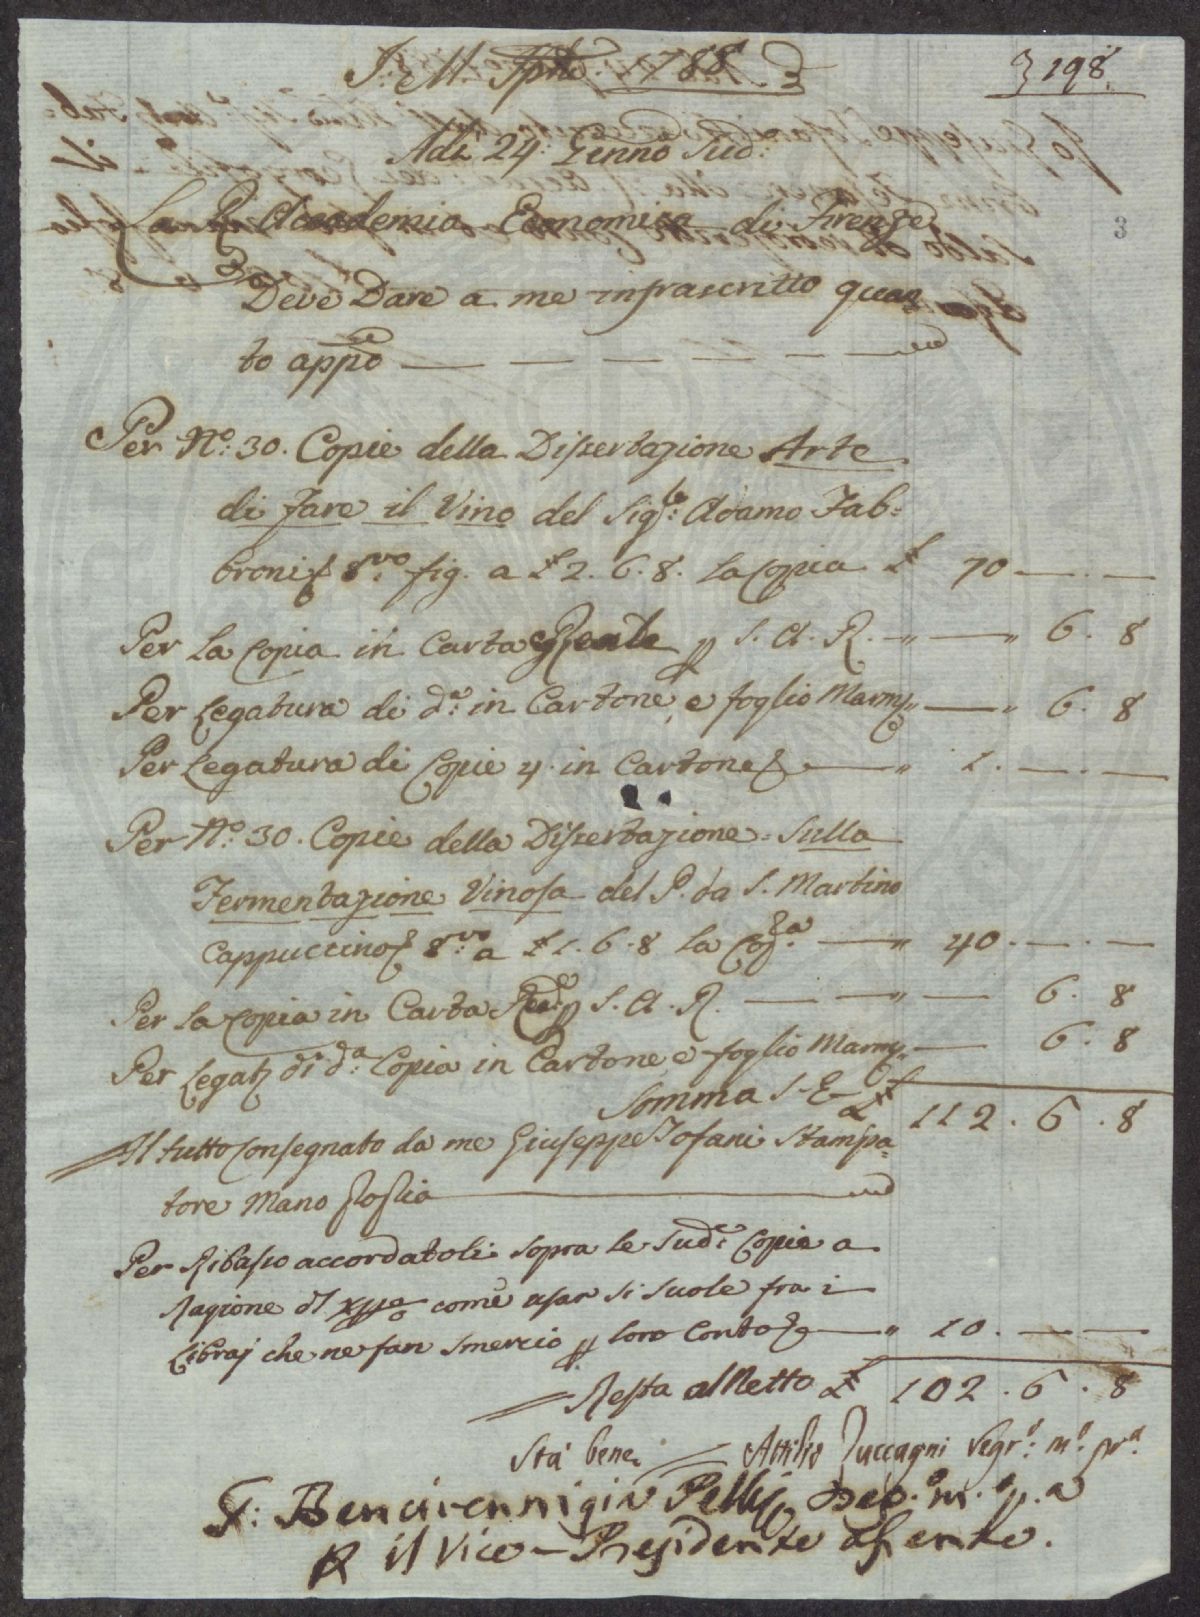 3 198.
J. M. 1788. 3
Adi 24: Genno Sud:
La R. Accademia Economica di Firenze
3
Deve Dare a me infrascritto quan
to app̃o
Per N.o: 30. Copie della Dissertazione Arte
di fare il Vino del Sig.re: Adamo Fab=
broni 8.vo: fig. a £ 2. 6. 8. la Copia £ 70 — . —
Per la Copia in Carta Reale p S. A. R. — " — " 6. 8
Per Legatura di d.a: in Cartone, e foglio Marm: " — " 6. 8
Per Legatura di Copie 4. in Cartone — " 1. — . —
Per N.o: 30. Copie della Dissertazione = Sulla
Fermentazione Vinosa del P. da S. Martino
Cappuccino 8.vo: a £ 1. 6. 8 la Cop.a: — " 40. — . —
Per la Copia in Carta Rea: p S. A. R. — — " — 6. 8
Per Legat: di d.a: Copia in Cartone, e foglio Marm: — 6. 8
Somma S. E. £ 112. 6. 8
Il tutto consegnato da me Giuseppe Tofani Stampa=
tore Mano Propria
Per Ribasso accordatoli sopra le Sud.e: Copie a
Ragione di come usar si suole fra i
Libraj che ne fan smercio p loro Conto — " 10. — . —
Resta al Netto £ 102. 6. 8
Sta bene Attilio Zuccagni Segr.o: m.o: pr.a:
F: Bencivenni già Pelli Dep.o m.o p.a
il Vice-Presidente